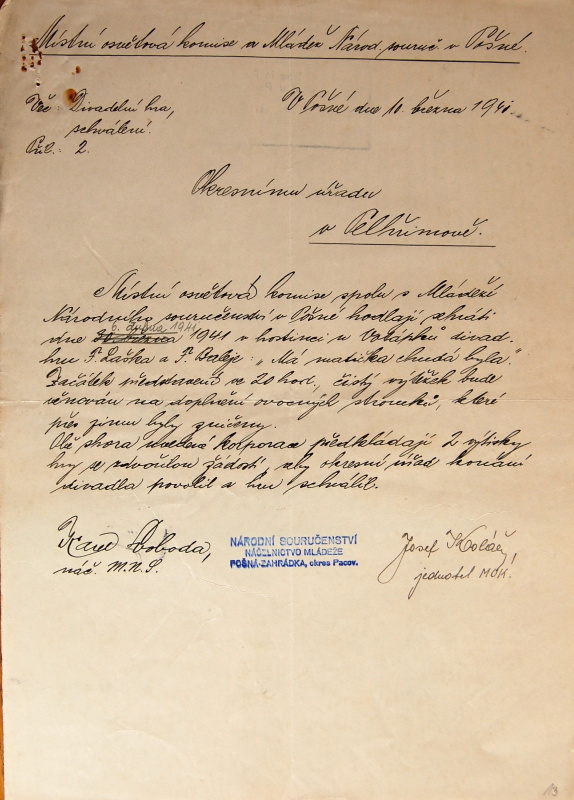 Místní osvětová komise a Mládež Národ. souruč. v Pošné.
Věc: Divadelní hra, V Pošné dne 10. března 1941.
schválení.
Příl.: 2.
Okresnímu úřadu
v Pelhřimově.
Místní osvětová komise spolu s Mládeží
Národního souručenství v Pošné hodlají sehráti
6. dubna 1941
dne 1941 v hostinci u Votápků divad.
hru F. Laška a F. Baleje: „Má matička chudá byla".
Začátek představení ve 20 hod., čistý výtěžek bude
věnován na doplnění ovocných stromků, které
přes zimu byly zničeny.
Obě shora uvedené korporace předkládají 2 výtisky
hry se zdvořilou žádostí, aby okresní úřad konání
divadla povolil a hru schválil.
Karel Svoboda,
náč. M.N.S.
NÁRODNÍ SOURUČENSTVÍ
NÁČELNICTVO MLÁDEŽE
POŠNÁ-ZAHRÁDKA, okres Pacov.
Josef Kolář,
jednatel MOK.
13